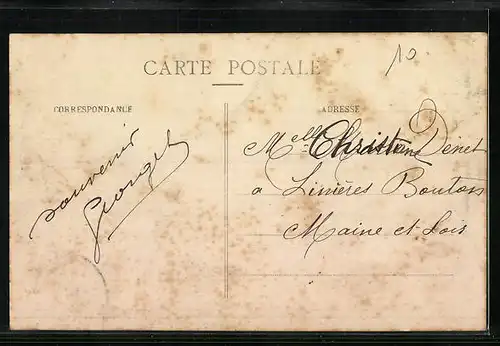 10
CARTE POSTALE
CORRESPONDANCE
ADRESSE
souvenir
Georget
Melle Christiane Denet
a Linières Bouton
Maine et Lois